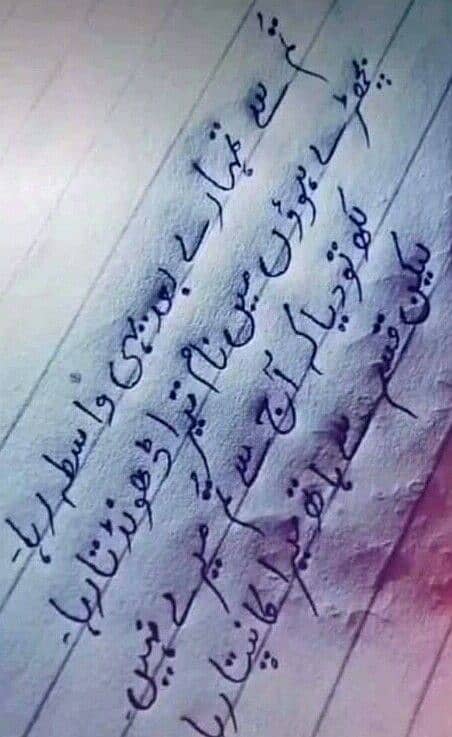 تم سے تمہارے بعد بھی واسطہ رہا۔
بچھڑے ہوؤں میں نام تیرا ڈھونڈتا رہا۔
لکھ تو دیا کہ آج سے تم میرے نہیں۔
لیکن قسم سے ہاتھ میرا کانپتا رہا